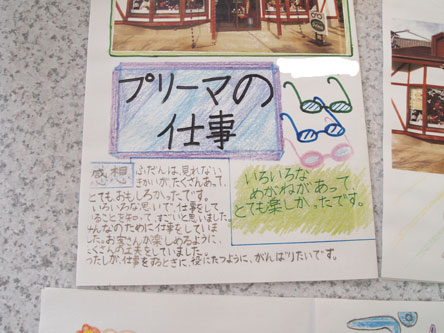 プリーマの
仕事
感想
ふだんは、見れない
きかいが、たくさんあって、
とてもおもしろかったです。
いろいろな思いで仕事をして
いることを知って、すごいと思いました。
みんなのために仕事をしていま
した。お客さんが楽しめるように、
たくさんの仕事をしていました
わたしが、仕事をするときに、役にたつように、がんばりたいです。
いろいろな
めがねがあって、
とても楽しかったです。